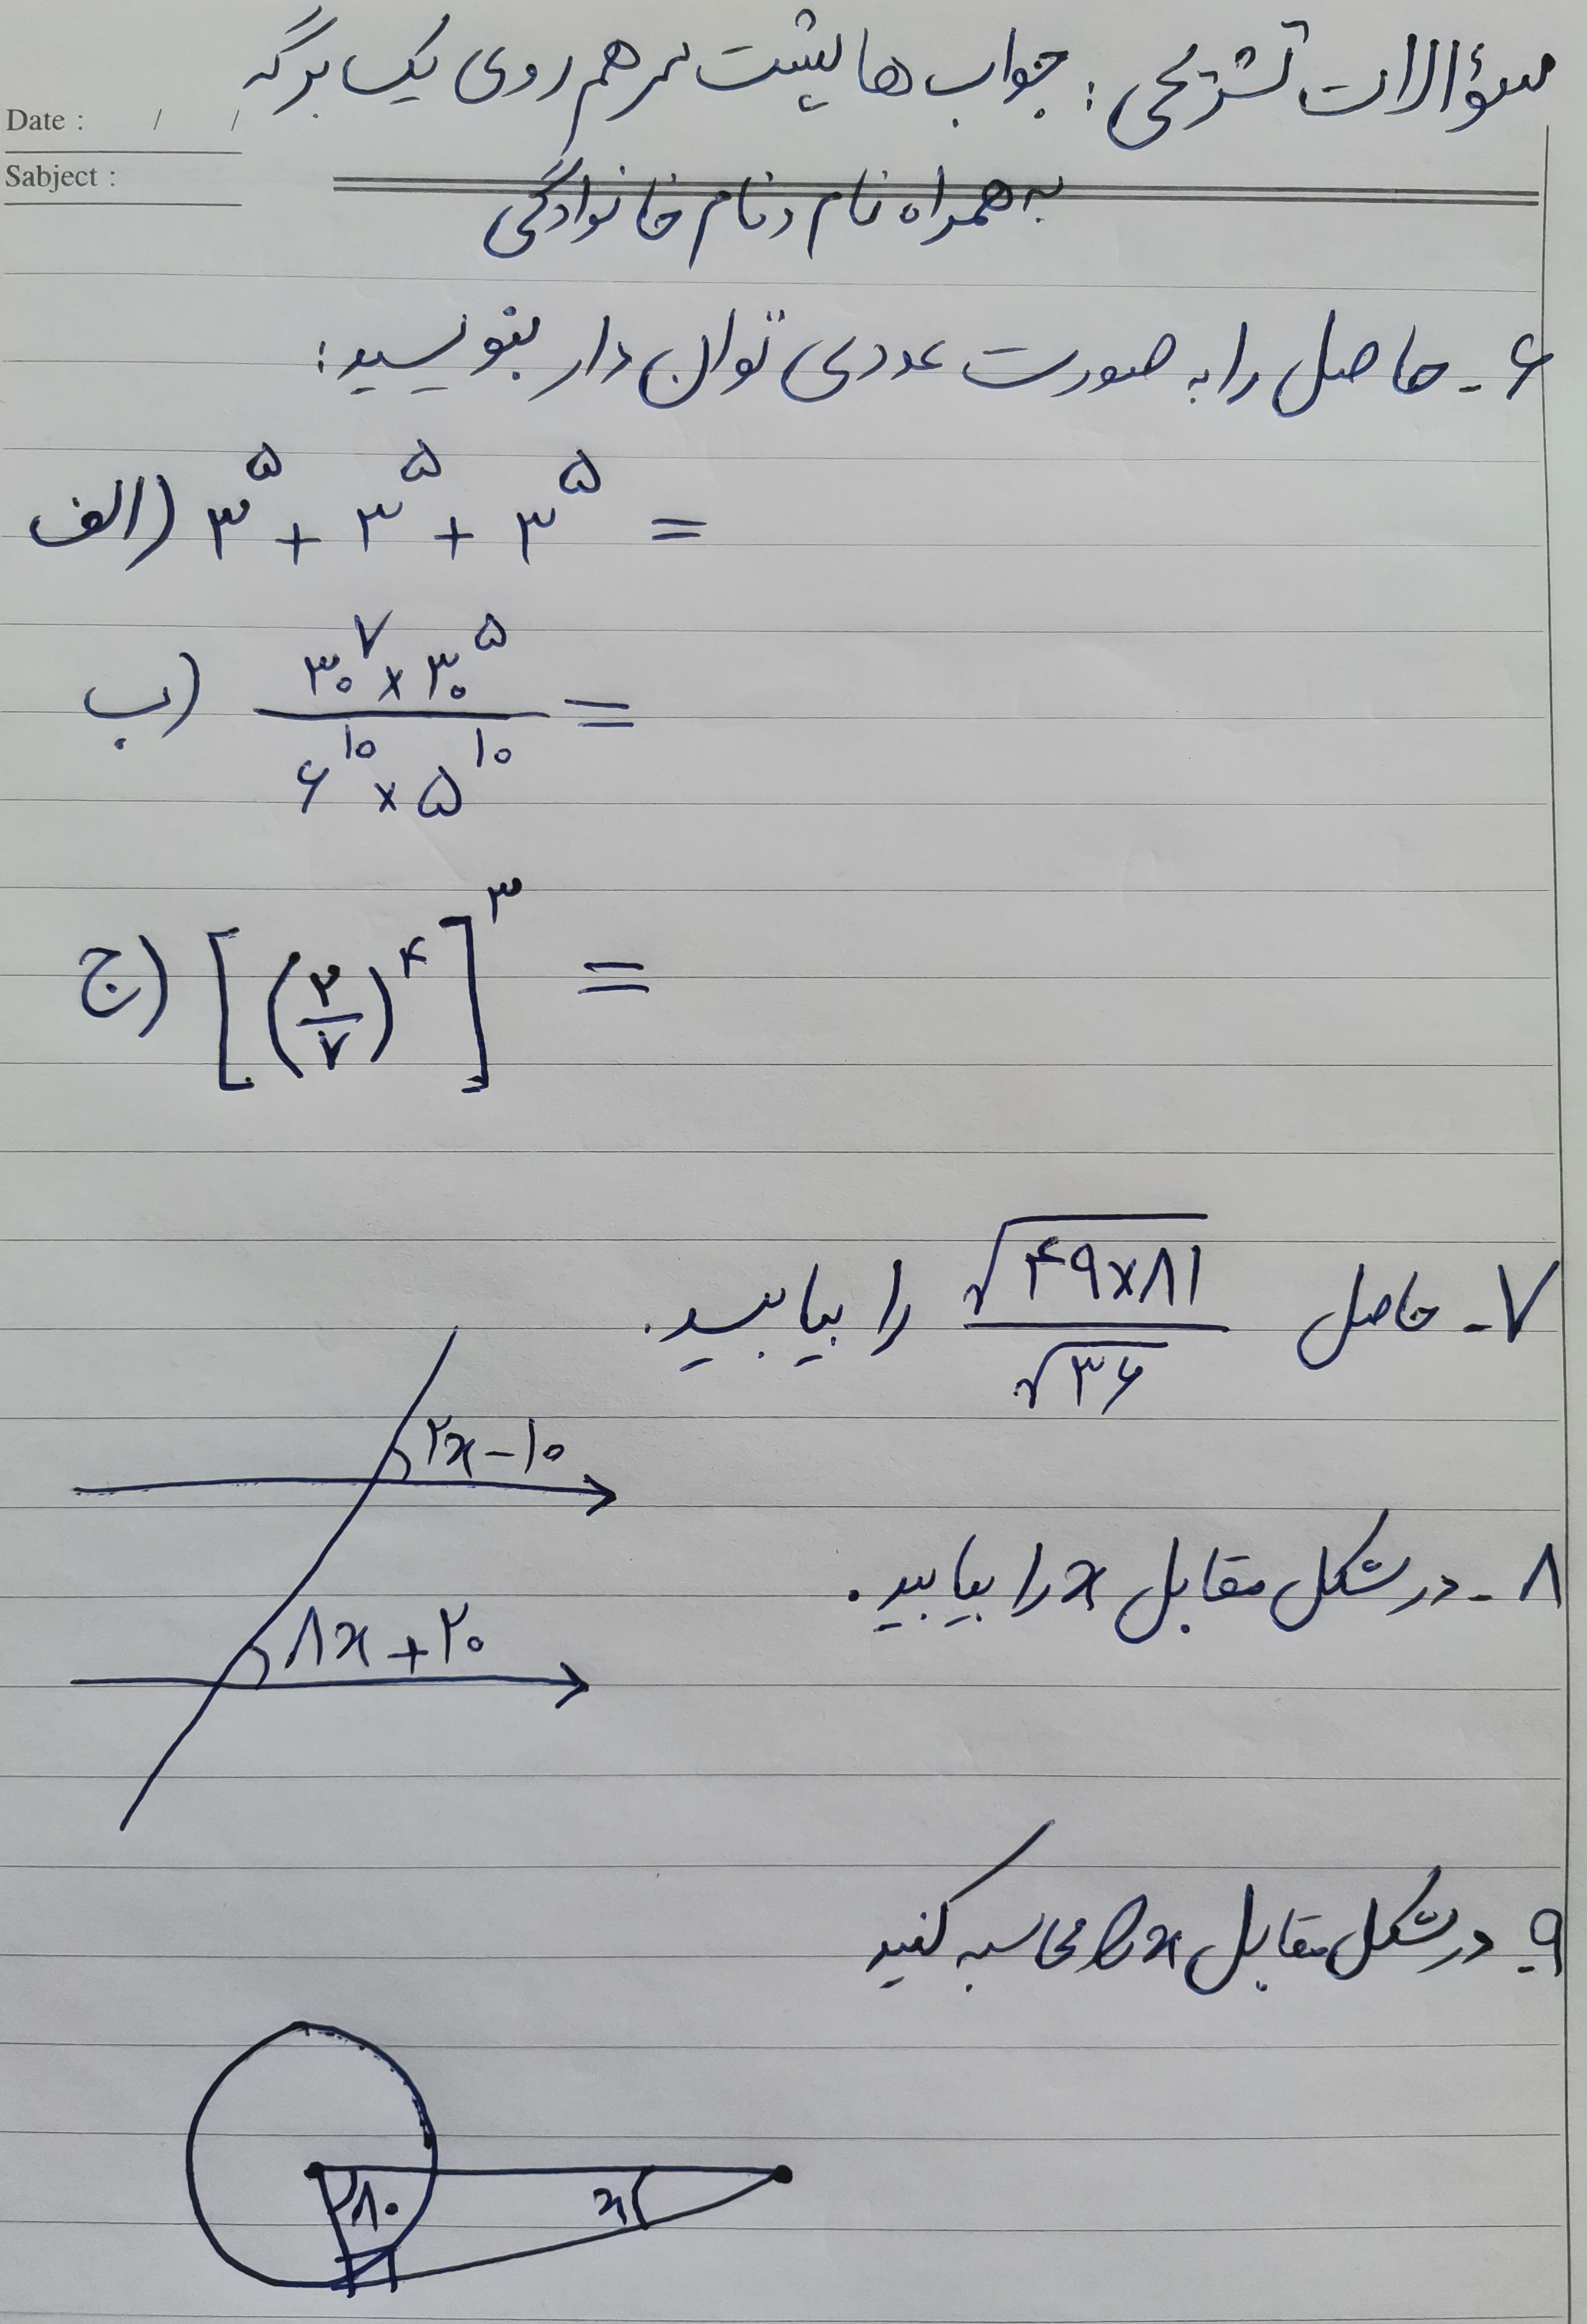 سؤالات تشریحی: جواب ها پشت سر هم روی یک برگه
Date : / /
Sabject :
به همراه نام و نام خانوادگی
۶- حاصل را به صورت عددی توان دار بنویسید:
الف) ۳^۵ + ۳^۵ + ۳^۵ =
ب) (۳۰^۷ × ۳۰^۵) / (۶^۱۰ × ۵^۱۰) =
ج) [(۲/۷)^۴]^۳ =
۷- حاصل √(۴۹×۸۱) / √۳۶ را بیابید.
۲x - ۱۰
۸- در شکل مقابل x را بیابید.
۸x + ۲۰
۹- در شکل مقابل x را محاسبه کنید
۸۰
x